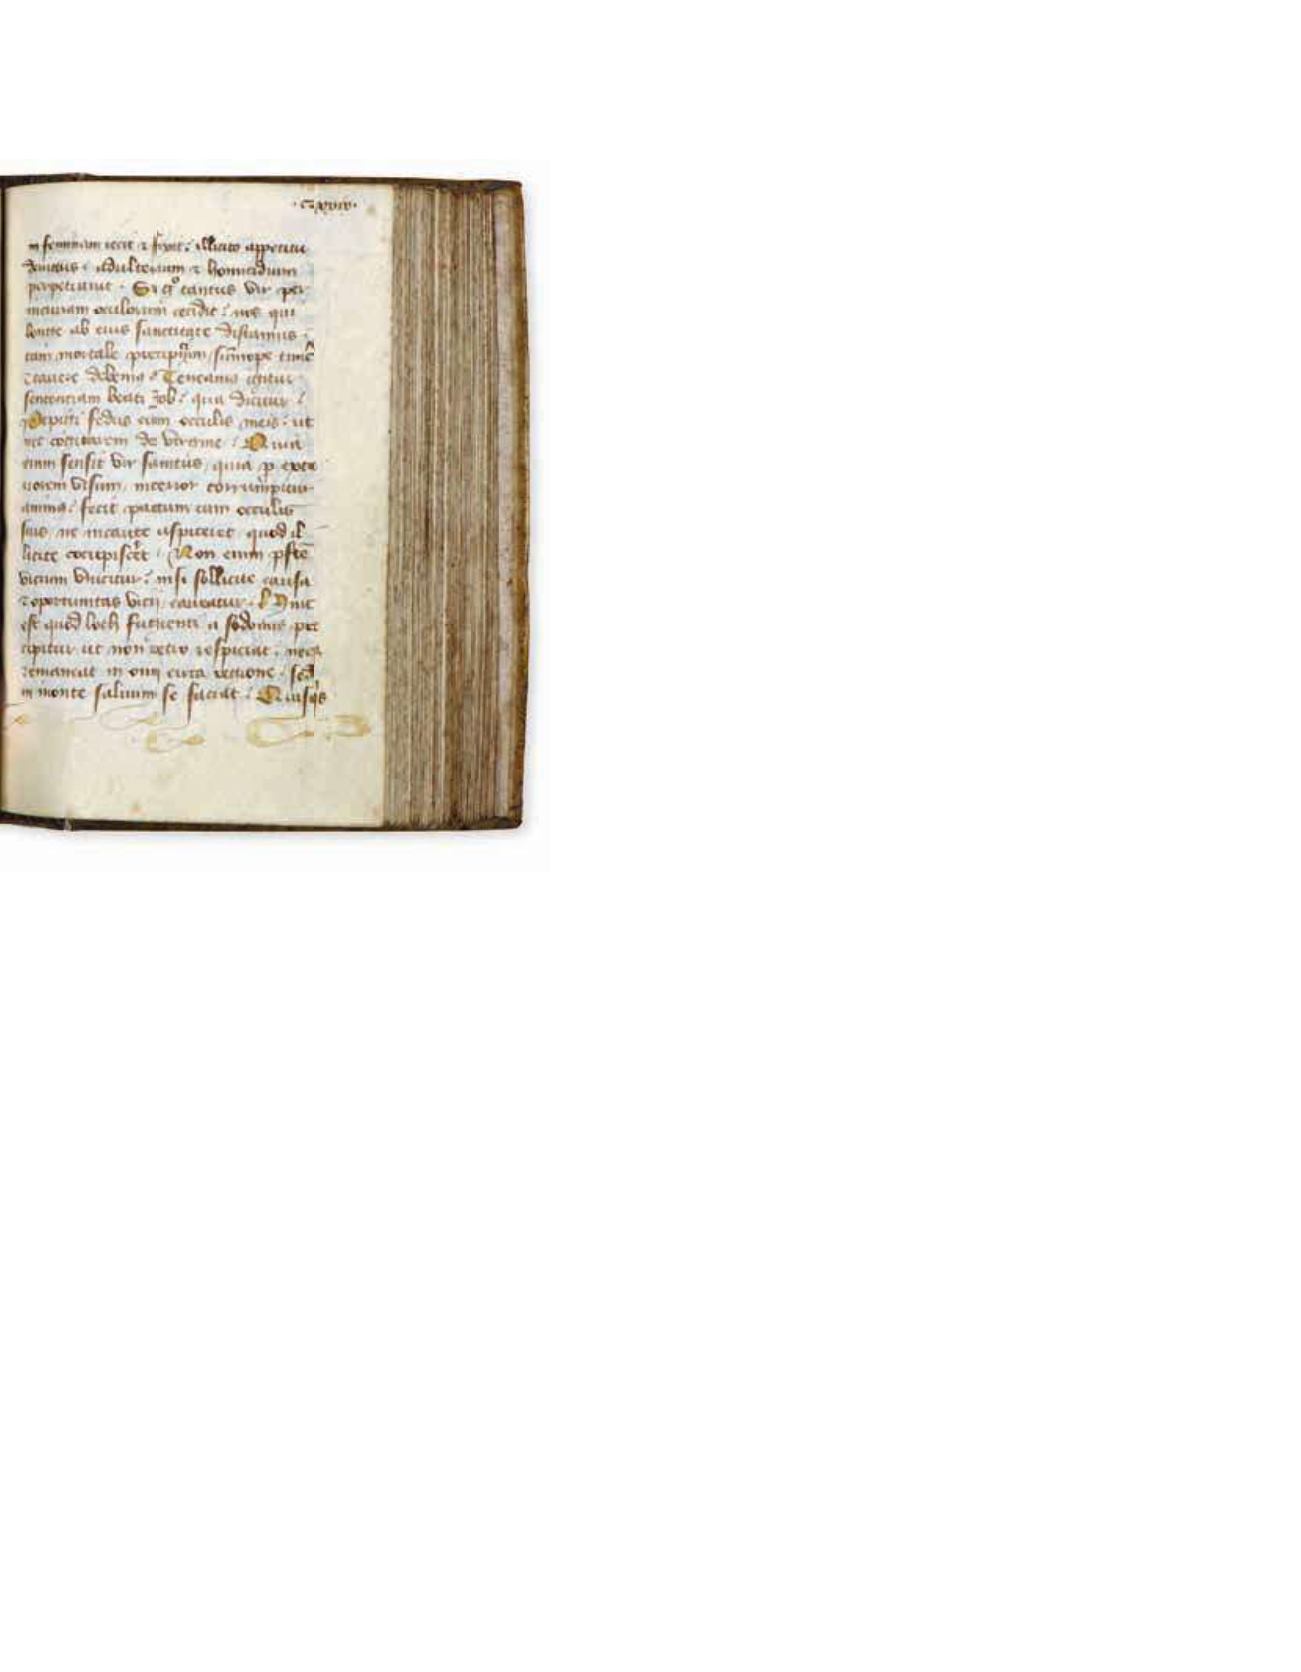 in feminam iecit & fixit: illicito appetitu
adulterium & homicidium
perpetravit. Si gͦ tantus vir per
incuriam oculorum cecidit: nos qui
longe ab eius sanctitate distamus:
tam mortale precipitiūm sūmope timē
& cavere debemus: Teneamus igitur
sentenciam beati Job: qua dicitur:
Pepigi fedus cum occulis meis: ut
nec cogitarem de virgine: Quia
enim sensit vir sanctus, quia p exte
riorem visum, interior corrumpitur
anima: fecit pactum cum occulis
suis, ne incaute aspiceret, quod il
licite cōcupiscēt: Non enim pfte
vicium vincitur: nisi sollicite causa
& oportunitas vicij, caveatur. Hinc
est quod loth fugienti a sodomis pre
cipitur ut non retro respiciat. neqꝫ
remaneat in omi circa regione: sed
in monte salvum se faciat: Quisqs